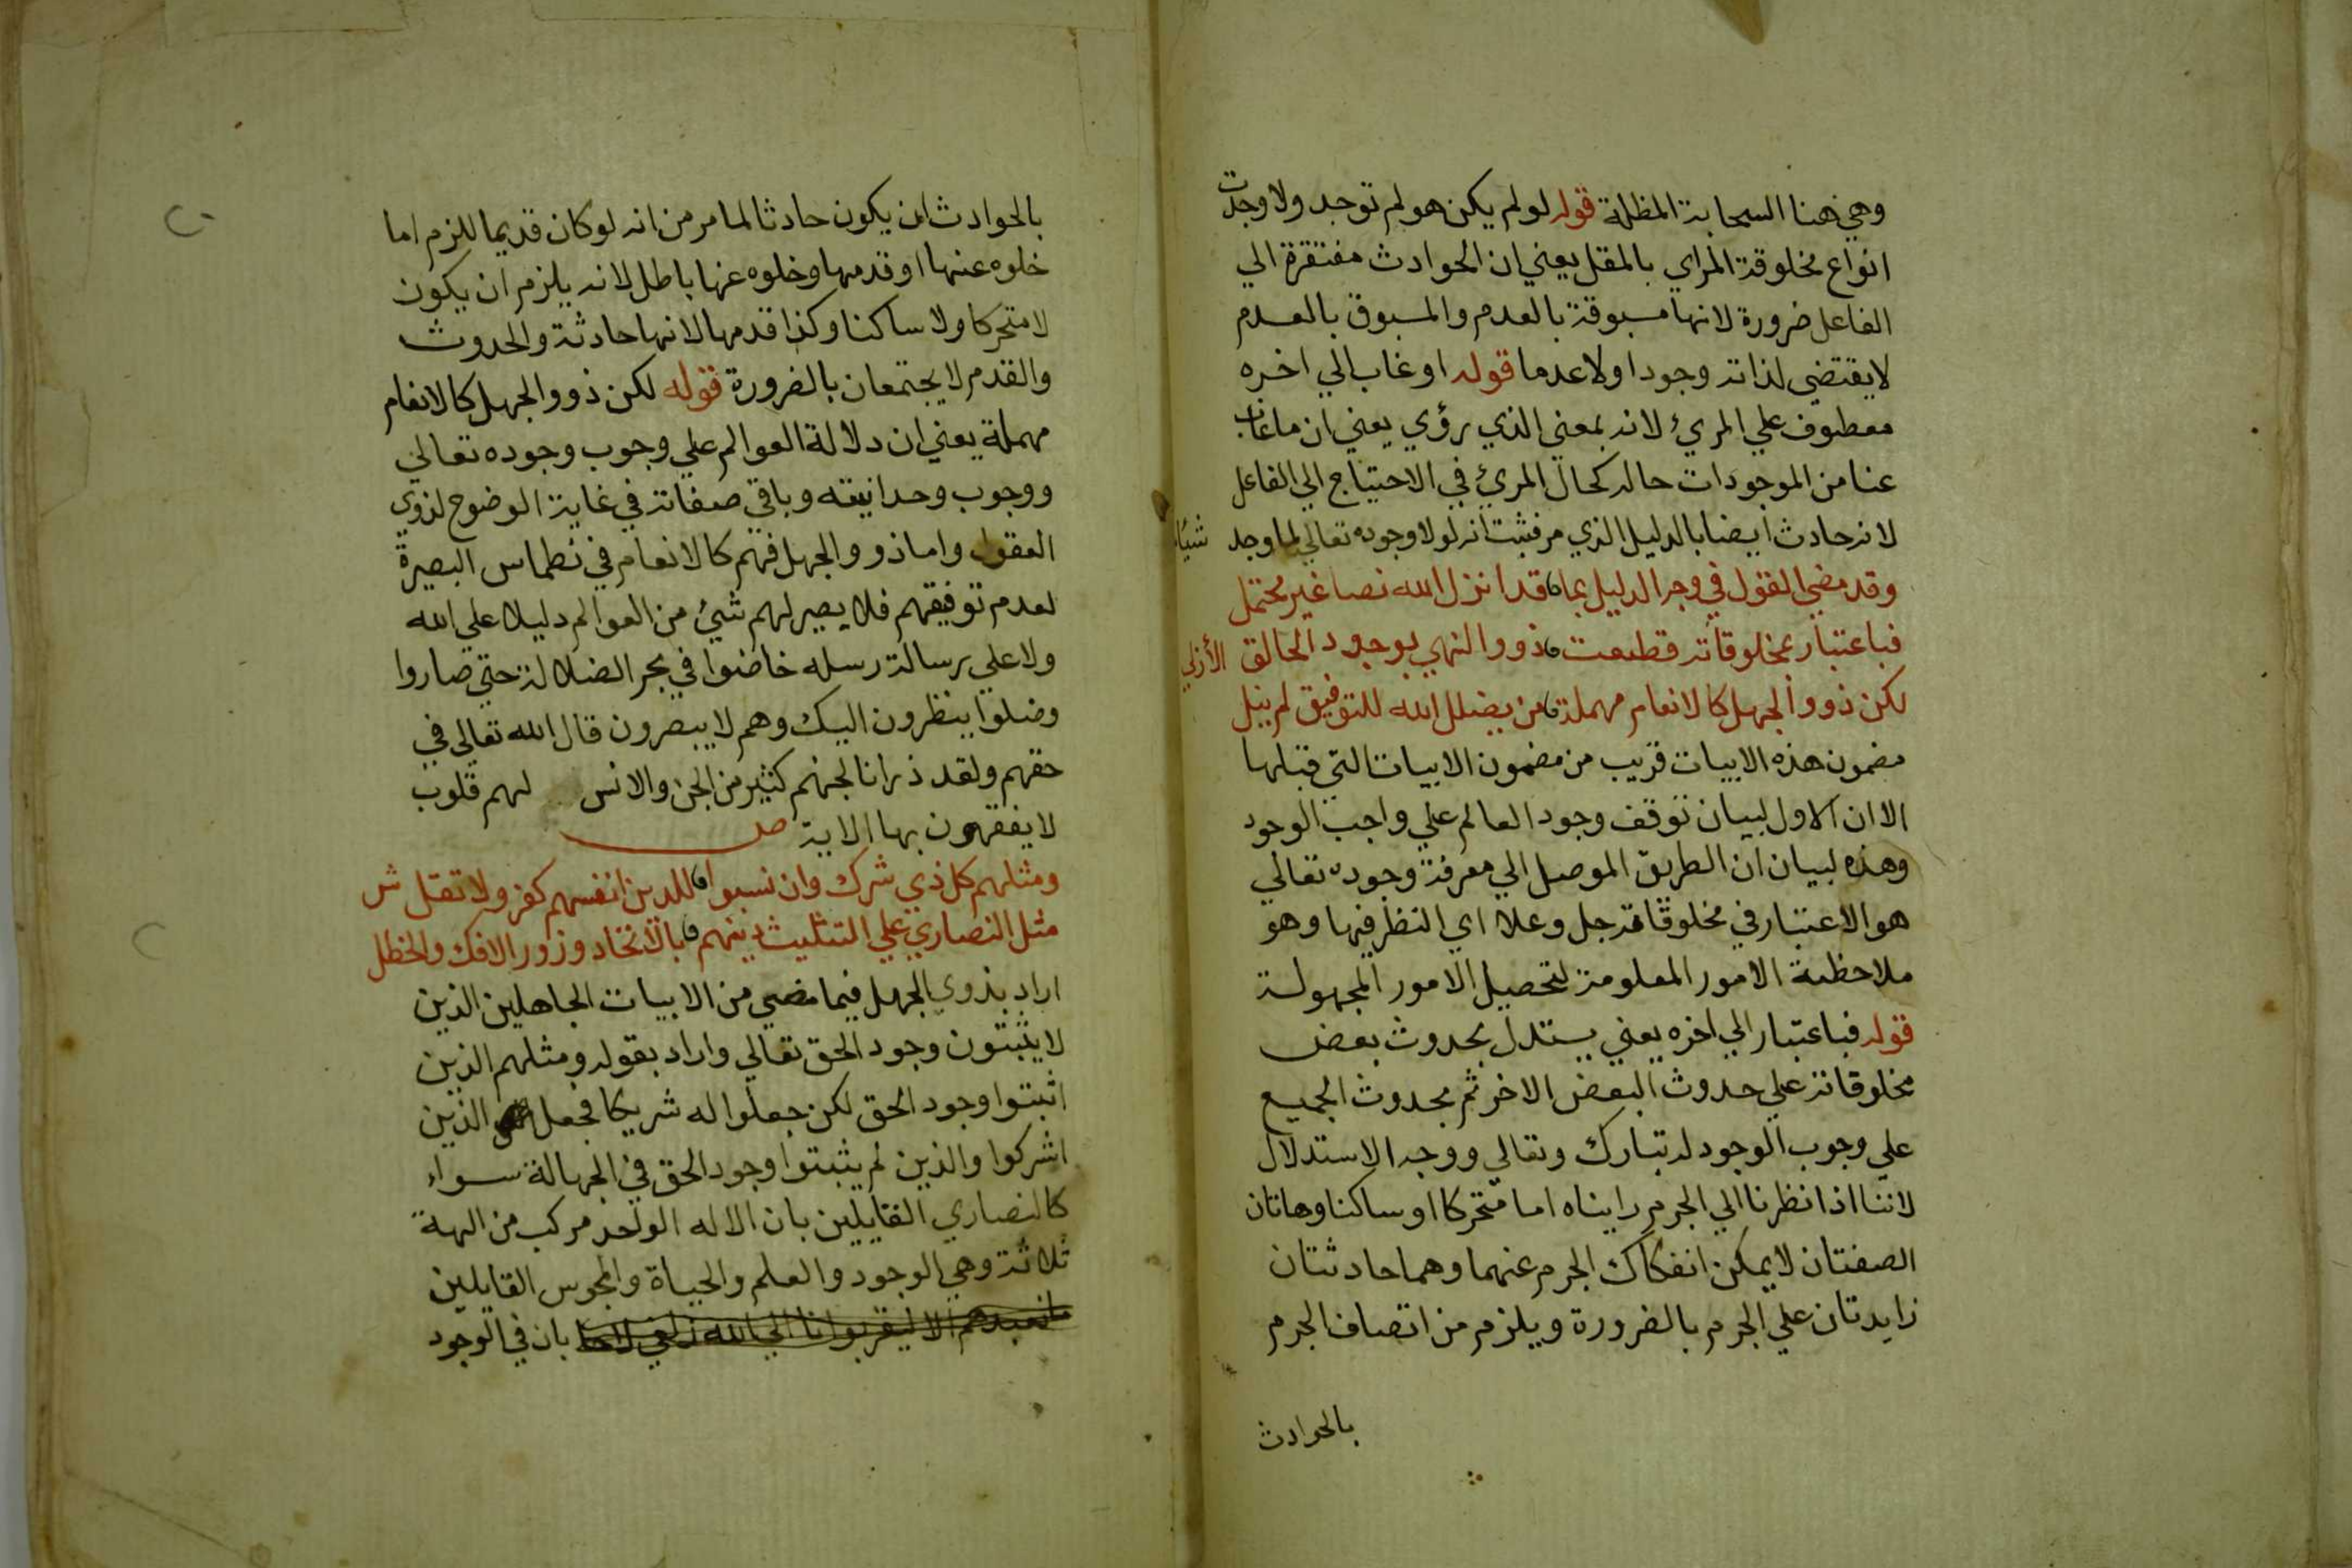 وهي هنا السحابة المظلة قوله لو لم يكن هو لم توجد ولا وجدت
انواع مخلوقة المراي بالمقل يعني ان الحوادث مفتقرة الي
الفاعل ضرورة لانها مسبوقة بالعدم والمسبوق بالعدم
لا يقتضي لذاته وجودا ولا عدما قوله او غاب الي اخره
معطوف علي المرئ لانه بمعني الذي رؤي يعني ان ما غاب
عنا من الموجودات حاله كحال المرئ في الاحتياج الي الفاعل
لانه حادث ايضا بالدليل الذي مر فثبت انه لولا وجوده تعالي لما وجد شيئا
وقد مضي القول في وجه الدليل بما قد انزل الله نصا غير محتمل
فباعتبار بمخلوقاته قطعت ذووا النهي بوجود الخالق الأزلي
لكن ذووا الجهل كالانعام مهملة من يضلل الله للتوفيق لم ينل
مضمون هذه الابيات قريب من مضمون الابيات التي قبلها
الا ان الاول لبيان توقف وجود العالم علي واجب الوجود
وهذه لبيان ان الطريق الموصل الي معرفة وجوده تعالي
هو الاعتبار في مخلوقاته جل وعلا اي النظر فيها وهو
ملاحظة الامور المعلومة لتحصيل الامور المجهولة
قوله فباعتبار الي اخره يعني يستدل بحدوث بعض
مخلوقاته علي حدوث البعض الاخر ثم بحدوث الجميع
علي وجوب الوجود له تبارك وتعالي ووجه الاستدلال
لاننا اذا نظرنا الي الجرم رايناه اما متحركا او ساكنا وهاتان
الصفتان لا يمكن انفكاك الجرم عنهما وهما حادثتان
زايدتان علي الجرم بالضرورة ويلزم من اتصاف الجرم
بالحوادث
بالحوادث ان يكون حادثا لما مر من انه لو كان قديما للزم اما
خلوه عنها او قدمها وخلوه عنها باطل لانه يلزم ان يكون
لا متحركا ولا ساكنا وكذا قدمها لانها حادثة والحدوث
والقدم لا يجتمعان بالضرورة قوله لكن ذووا الجهل كالانعام
مهملة يعني ان دلالة العوالم علي وجوب وجوده تعالي
ووجوب وحدانيته وباقي صفاته في غاية الوضوح لذوي
العقول واما ذووا الجهل فهم كالانعام في نطماس البصيرة
لعدم توفيقهم فلا يصير لهم شيئ من العوالم دليلا علي الله
ولا علي رسالة رسله خاضوا في بحر الضلالة حتي صاروا
وضلوا ينظرون اليك وهم لا يبصرون قال الله تعالي في
حقهم ولقد ذرانا لجهنم كثير من الجن والانس لهم قلوب
لا يفقهون بها الاية صـ
ومثلهم كل ذي شرك وان نسبوا للدين انفسهم كفر ولا تقل ش
مثل النصاري علي التثليث دينهم بالاتخاد وزور الافك والخطل
اراد بذوي الجهل فيما مضي من الابيات الجاهلين الذين
لا يثبتون وجود الحق تعالي واراد بقوله ومثلهم الذين
اثبتوا وجود الحق لكن جعلوا له شريكا فجعل الذين
اشركوا والذين لم يثبتوا وجود الحق في الجهالة سواء
كالنصاري القايلين بان الاله الواحد مركب من الهة
ثلاثة وهي الوجود والعلم والحياة والمجوس القايلين
ما نعبدهم الا ليقربونا الي الله زلفي بان في الوجود